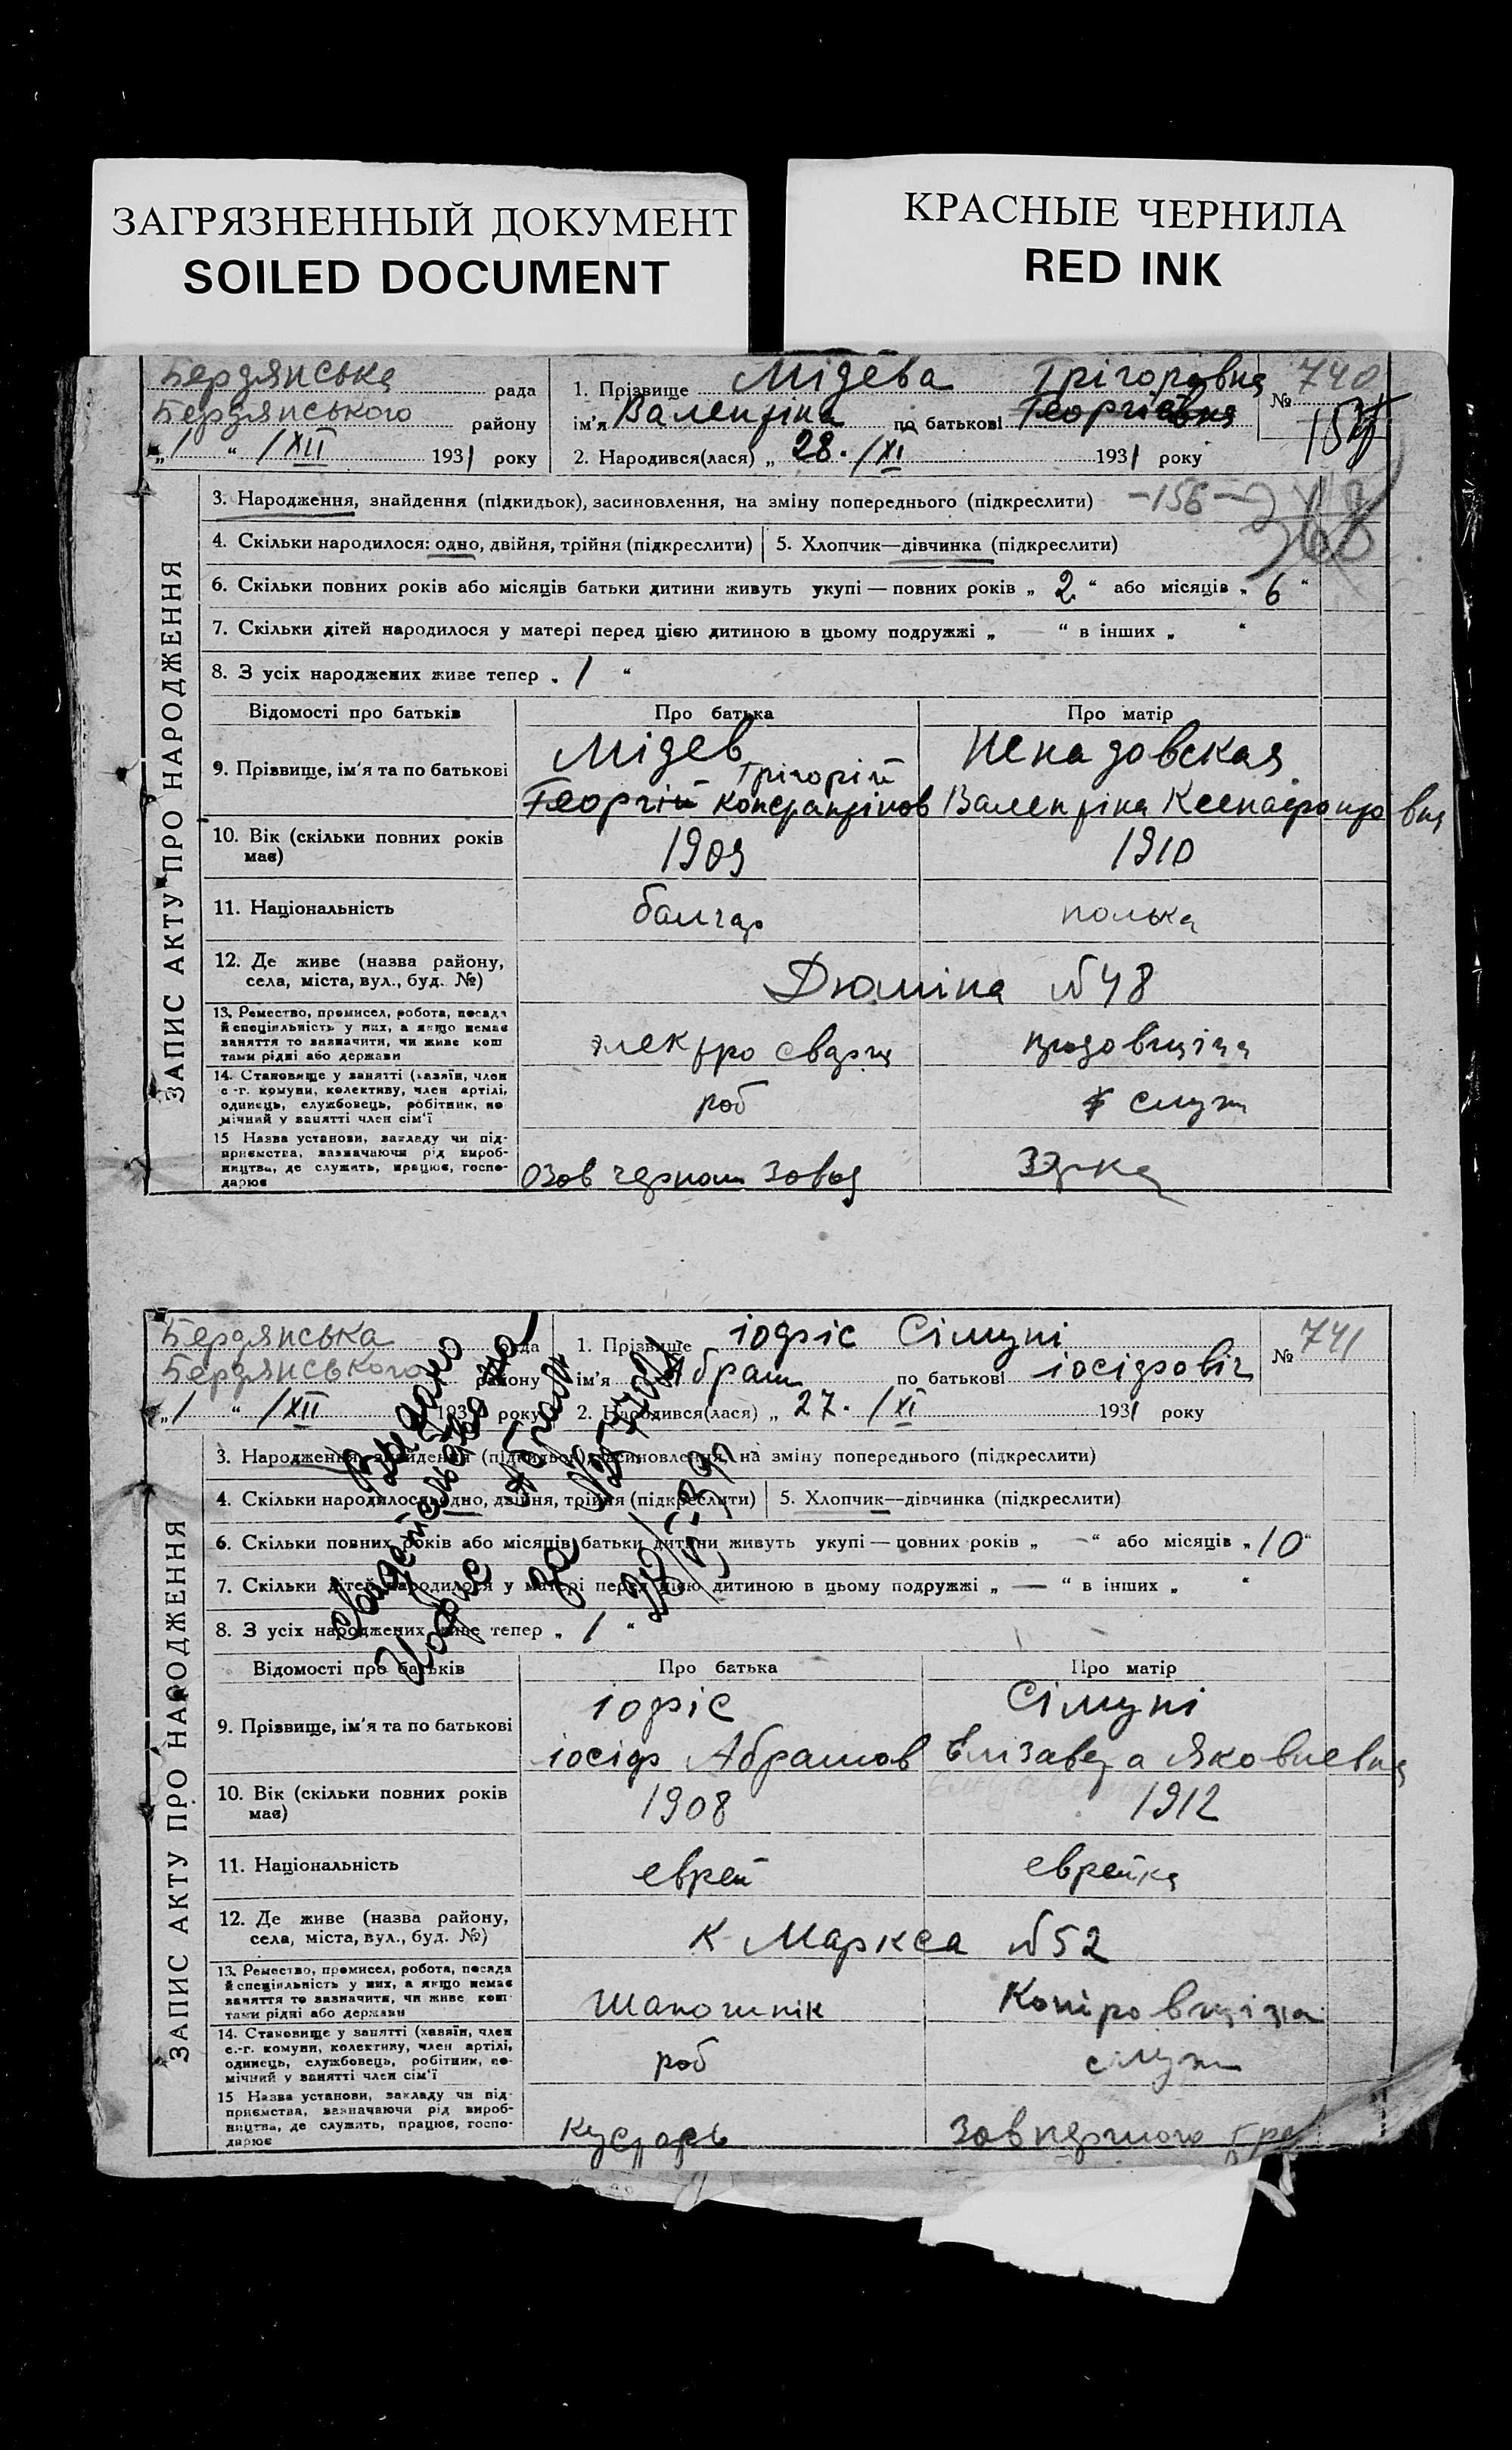 ЗАГРЯЗНЕННЫЙ ДОКУМЕНТ
SOILED DOCUMENT
КРАСНЫЕ ЧЕРНИЛА
RED INK
Бердянська рада
Бердянського району
„1“ /XII 1931 року
1. Прізвище Мідева Грігоровна
ім'я Валентіна по батькові Георгієвна
2. Народився(лася) „28. /XI 1931 року
№ 740
ЗАПИС АКТУ ПРО НАРОДЖЕННЯ
3. Народження, знайдення (підкидьок), засиновлення, на зміну попереднього (підкреслити) -156-
4. Скільки народилося: одно, двійня, трійня (підкреслити) 5. Хлопчик—дівчинка (підкреслити)
6. Скільки повних років або місяців батьки дитини живуть укупі — повних років „ 2 “ або місяців „ 6 “
7. Скільки дітей народилося у матері перед цією дитиною в цьому подружжі „ — “ в інших „ “
8. З усіх народжених живе тепер „ 1 “
Відомості про батьків Про батька Про матір
9. Прізвище, ім'я та по батькові
Мідев
Грігорій
Георгій Константінов
Ненадовская
Валентіна Ксенофонтовна
10. Вік (скільки повних років має) 1909 1910
11. Національність болгар полька
12. Де живе (назва району, села, міста, вул., буд. №) Дюміна №48
13. Ремество, промисел, робота, посада
й спеціяльність у них, а якщо немає
заняття то зазначити, чи живе кош
тами рідні або держави
электро сварщ
14. Становище у занятті (хазяїн, член
с.-г. комуни, колективу, член артілі,
одинець, службовець, робітник, по
мічний у занятті член сім'ї
роб служ
15 Назва установи, закладу чи під-
приємства, зазначаючи рід вироб-
ництва, де служить, працює, госпо-
дарює
Азов черном завод
Бердянська рада
Бердянського району
„1“ /XII 1931 року
1. Прізвище іофіс Сімуні
ім'я Абрам по батькові іосіфовіч
2. Народився(лася) „27. /XI 1931 року
№ 741
Видано
ЗАПИС АКТУ ПРО НАРОДЖЕННЯ
3. Народження, знайдення (підкидьок), засиновлення, на зміну попереднього (підкреслити)
4. Скільки народилося: одно, двійня, трійня (підкреслити) 5. Хлопчик—дівчинка (підкреслити)
6. Скільки повних років або місяців батьки дитини живуть укупі — повних років „ - “ або місяців „ 10 “
7. Скільки дітей народилося у матері перед цією дитиною в цьому подружжі „ — “ в інших „ “
8. З усіх народжених живе тепер „ 1 “
Відомості про батьків Про батька Про матір
9. Прізвище, ім'я та по батькові
іофіс
іосіф Абрамов
Сімуні
Елізавета Яковлевна
10. Вік (скільки повних років має) 1908 1912
11. Національність еврей еврейка
12. Де живе (назва району, села, міста, вул., буд. №) К Маркса №52
13. Ремество, промисел, робота, посада
й спеціяльність у них, а якщо немає
заняття то зазначити, чи живе кош
тами рідні або держави
Шапошнік Копіровщіца
14. Становище у занятті (хазяїн, член
с.-г. комуни, колективу, член артілі,
одинець, службовець, робітник, по-
мічний у занятті член сім'ї
роб служ
15 Назва установи, закладу чи під-
приємства, зазначаючи рід вироб-
ництва, де служить, працює, госпо-
дарює
Кустарь